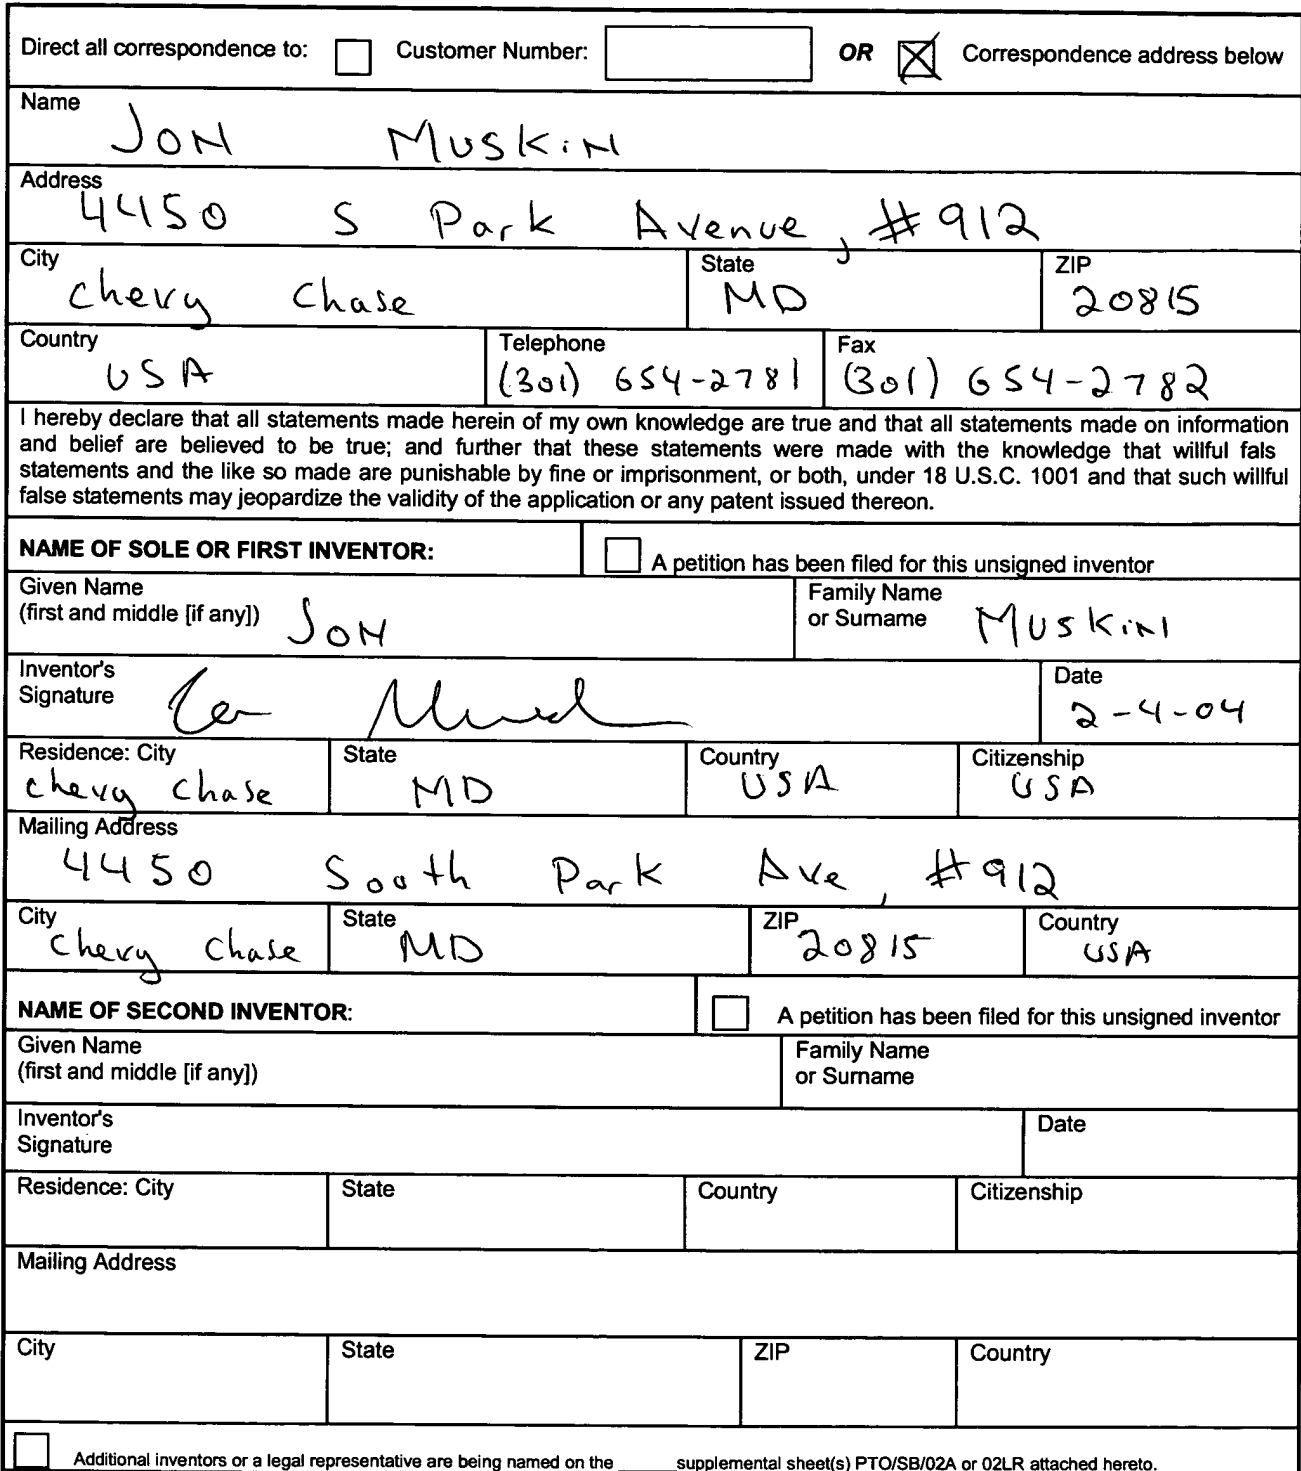 Direct all correspondence to: Customer Number: OR Correspondence address below
Name
JON MUSKIN
Address
4450 S Park Avenue, #912
City State ZIP
Chevy Chase MD 20815
Country Telephone Fax
USA (301) 654-2781 (301) 654-2782
I hereby declare that all statements made herein of my own knowledge are true and that all statements made on information
and belief are believed to be true; and further that these statements were made with the knowledge that willful fals
statements and the like so made are punishable by fine or imprisonment, or both, under 18 U.S.C. 1001 and that such willful
false statements may jeopardize the validity of the application or any patent issued thereon.
NAME OF SOLE OR FIRST INVENTOR: A petition has been filed for this unsigned inventor
Given Name Family Name
(first and middle [if any]) JON or Surname MUSKIN
Inventor's Date
Signature 2-4-04
Residence: City State Country Citizenship
Chevy Chase MD USA USA
Mailing Address
4450 South Park Ave, #912
City State ZIP Country
Chevy Chase MD 20815 USA
NAME OF SECOND INVENTOR: A petition has been filed for this unsigned inventor
Given Name Family Name
(first and middle [if any]) or Surname
Inventor's Date
Signature
Residence: City State Country Citizenship
Mailing Address
City State ZIP Country
Additional inventors or a legal representative are being named on the _____ supplemental sheet(s) PTO/SB/02A or 02LR attached hereto.